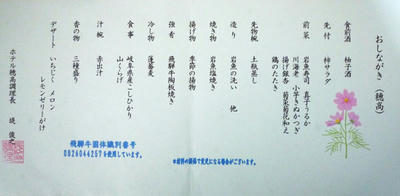 おしながき（穂高）
食前酒　柚子酒
先付　柿サラダ
前菜　岩魚寿司　真子うるか
川海老　小芋きぬかつぎ
揚げ銀杏　菊菜菊花和え
鶏のたたき
先物椀　土瓶蒸し
造り　岩魚の洗い　他
焼き物　岩魚塩焼き
揚げ物　季節の揚物
強肴　飛騨牛陶板焼き
冷し物　蓮蕎麦
食事　岐阜県産こしひかり
山くらげ
汁椀　赤出汁
香の物　三種盛り
デザート　いちじく　メロン
レモンゼリーがけ
ホテル穂高調理長　堤　俊之
飛騨牛個体識別番号
0826044257を使用しています。
※材料の関係で変更になる場合がございます。